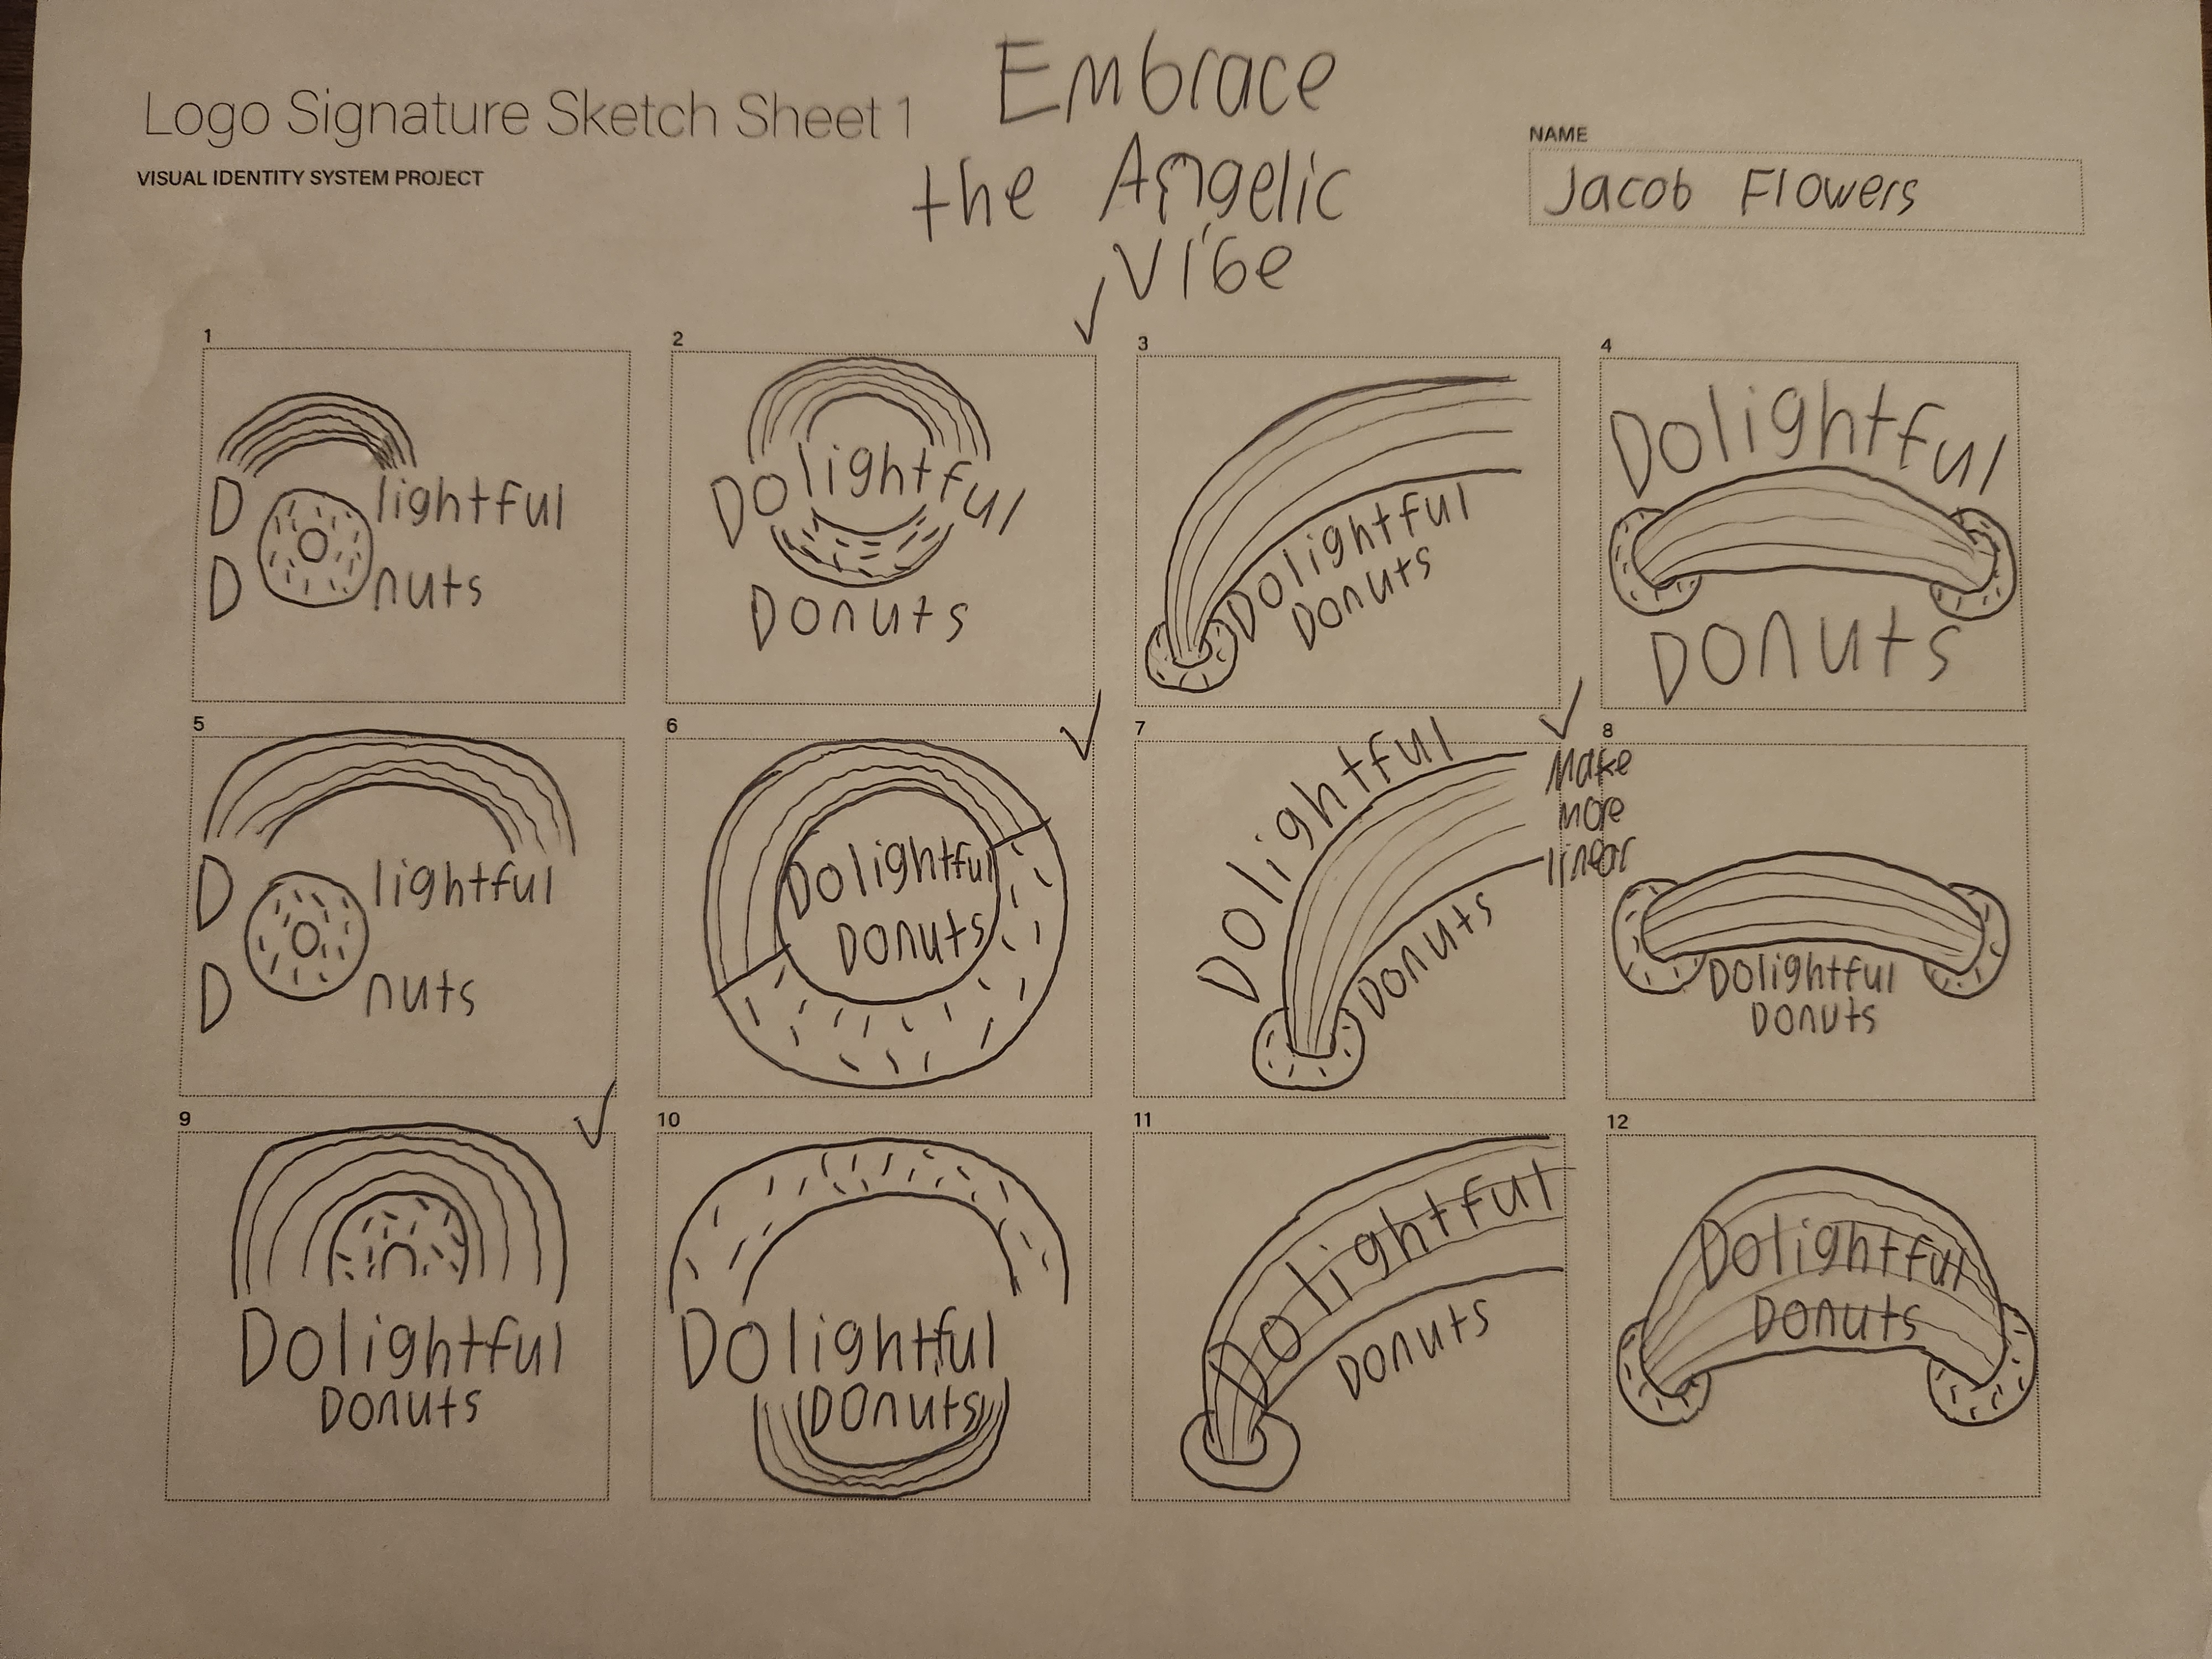 Logo Signature Sketch Sheet 1
VISUAL IDENTITY SYSTEM PROJECT
Embrace
the Angelic
Vibe
NAME
Jacob Flowers
1
D lightful
D nuts
2
DOlightful
Donuts
3
DOlightful
Donuts
4
DOlightful
Donuts
5
D lightful
D nuts
6
DOlightful
Donuts
7
DOlightful
Donuts
Make
more
linear
8
DOlightful
Donuts
9
DOlightful
Donuts
10
DOlightful
Donuts
11
DOlightful
Donuts
12
DOlightful
Donuts